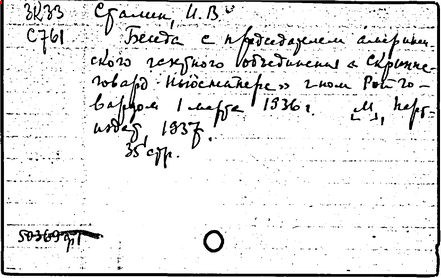 3К33 Сталин, И.В.
С761 Беседа с председателем америкы-
ского газетного объединения «Скриппс-
Говард Ньюспейперс» г-ном Рой Го-
вардом 1 марта 1936 г. [М], Парт-
издат, 1937.
35 стр.